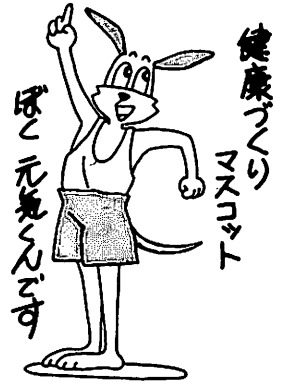 健康づくり
マスコット
ぼく元気くんです